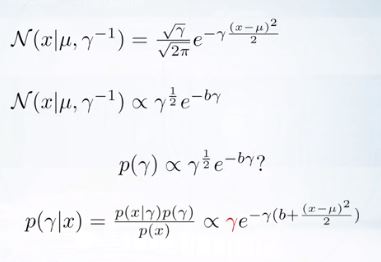 𝒩(x|μ, γ⁻¹) = √γ/√2π e^{−γ (x−μ)²/2}
𝒩(x|μ, γ⁻¹) ∝ γ^{1/2} e^{−bγ}
p(γ) ∝ γ^{1/2} e^{−bγ}?
p(γ|x) = p(x|γ)p(γ)/p(x) ∝ γe^{−γ(b+ (x−μ)²/2)}